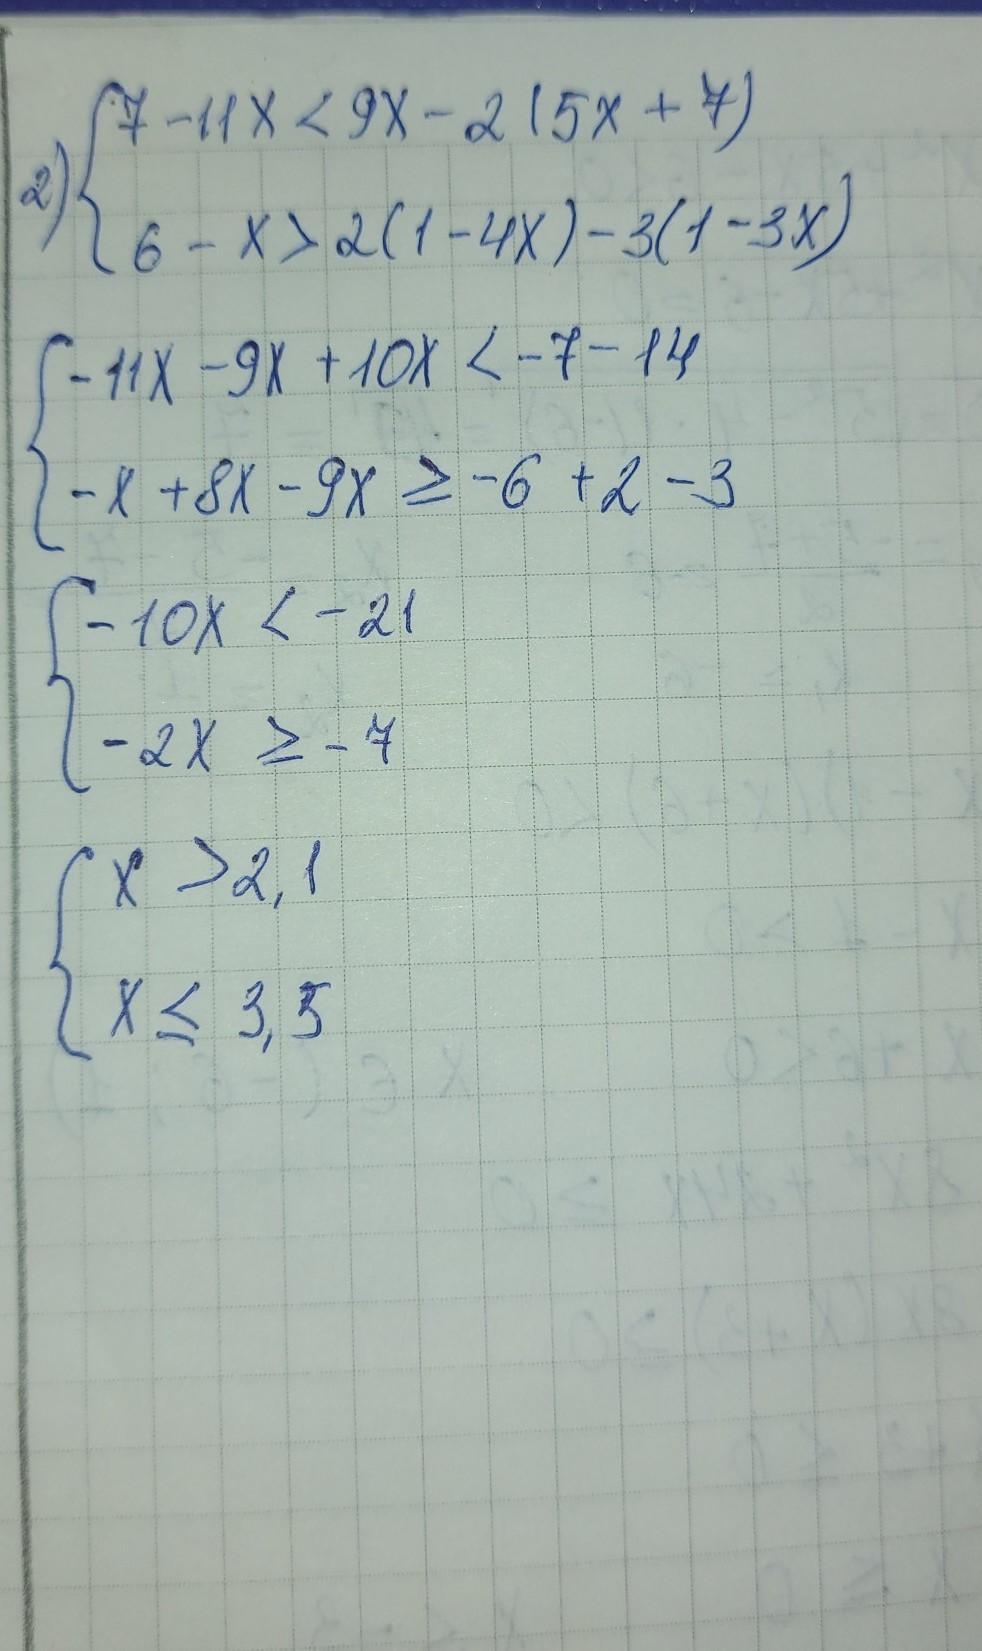 2) { 7 - 11x < 9x - 2(5x + 7)
6 - x > 2(1 - 4x) - 3(1 - 3x)
{ -11x - 9x + 10x < -7 - 14
-x + 8x - 9x ≥ -6 + 2 - 3
{ -10x < -21
-2x ≥ -7
{ x > 2,1
x ≤ 3,5